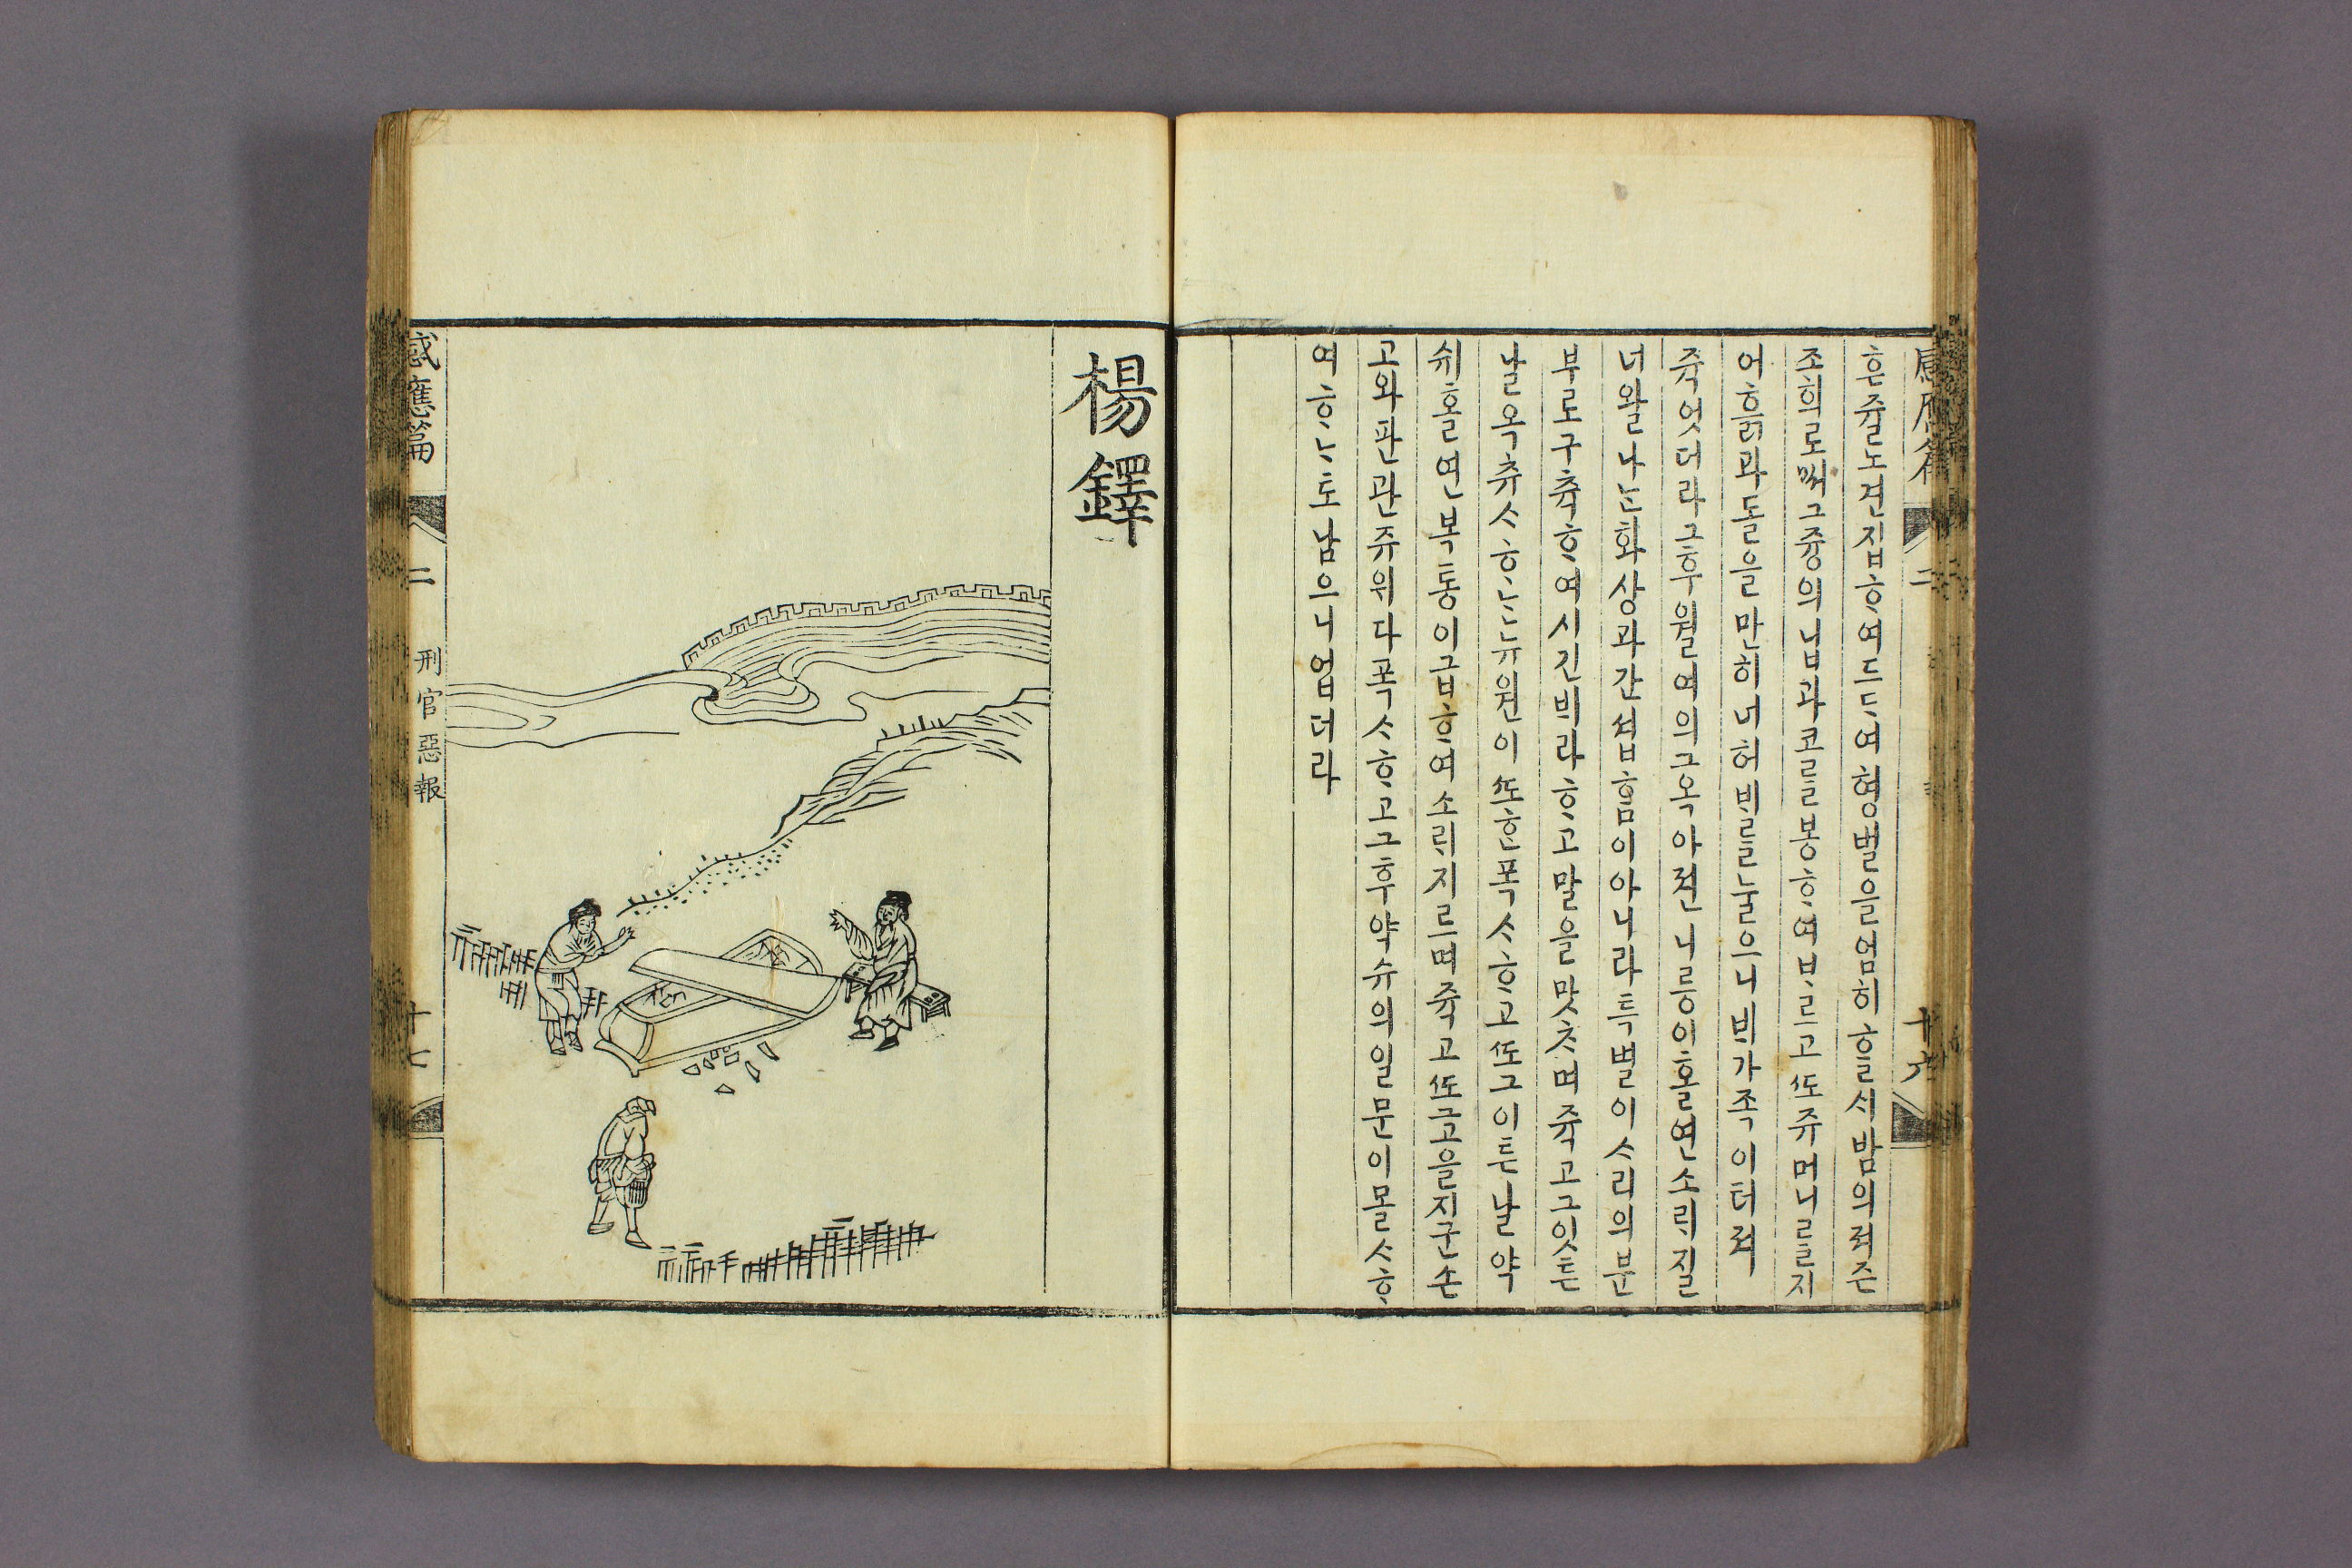 흔쥴노견집ᄒᆞ여드ᄃᆡ여형벌을엄히ᄒᆞᆯᄉᆡ밤의져즌
조희로ᄡᅥ그즁의닙과코를봉ᄒᆞ여ᄆᆞ르고ᄯᅩ쥬머니를지
어흙과돌을만히너허ᄇᆡ를눌으니ᄇᆡ가족이터져
쥭엇더라그후월여의그옥아젼니릉이홀연소ᄅᆡ질
너왈나ᄂᆞᆫ화상과간셥ᄒᆞᆷ이아니라특별이ᄉᆞ리의분
부로구츅ᄒᆞ여시긴ᄇᆡ라ᄒᆞ고말을맛ᄎᆞ며쥭고그잇튼
날옥츄ᄉᆞᄒᆞᄂᆞᆫ뉴원이ᄯᅩᄒᆞᆫ폭ᄉᆞᄒᆞ고ᄯᅩ그이튼날약
쉬홀연복통이급ᄒᆞ여소ᄅᆡ지르며쥭고ᄯᅩ고을직군손
고와판관쥬위다폭ᄉᆞᄒᆞ고그후약슈의일문이몰ᄉᆞᄒᆞ
여ᄒᆞᄂᆞ토남으니업더라
十六
楊鐸
感應篇
二
刑官惡報
十七